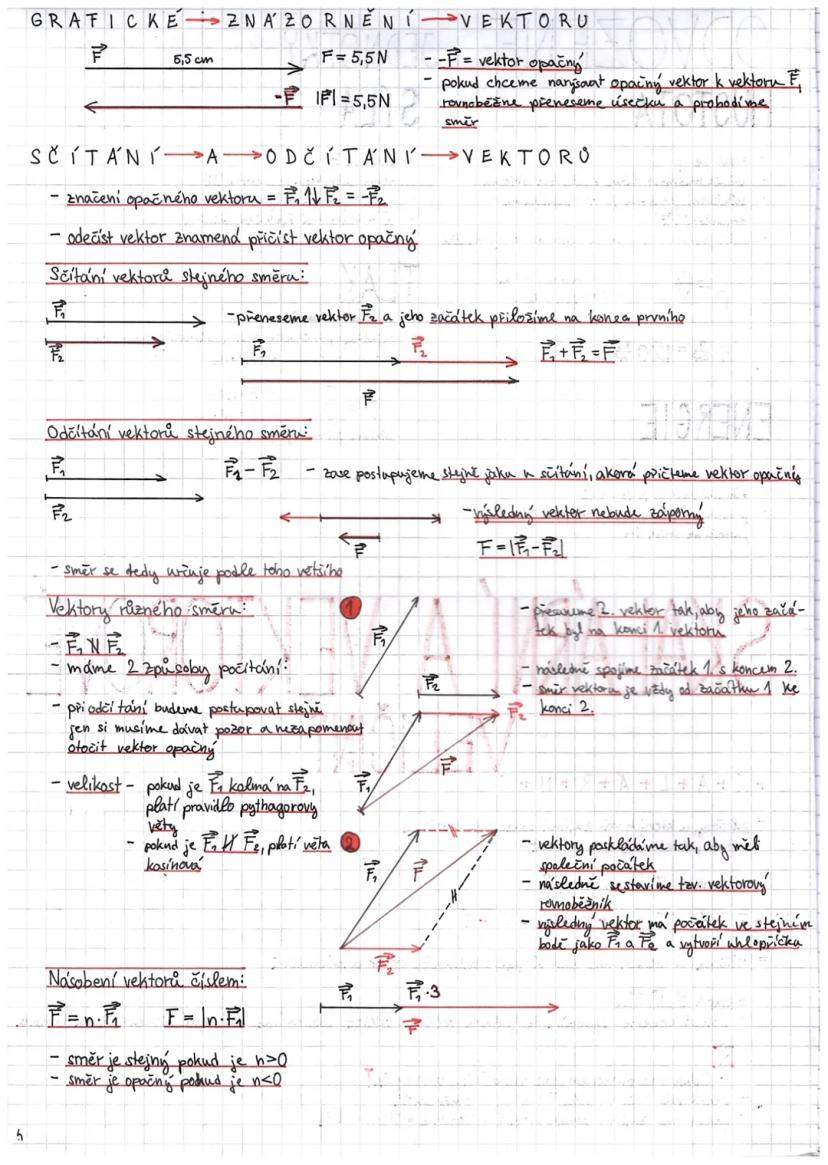 GRAFICKÉ → ZNÁZORNĚNÍ → VEKTORU
F⃗ 5,5cm F = 5,5N
-F⃗ |F⃗| = 5,5N
- -F⃗ = vektor opačný
- pokud chceme narýsovat opačný vektor k vektoru F⃗,
rovnoběžně přeneseme úsečku a prohodíme
směr
SČÍTÁNÍ → A → ODČÍTÁNÍ → VEKTORŮ
- značení opačného vektoru = F⃗₁ ↑↓ F⃗₂ = -F⃗₂
- odečíst vektor znamená přičíst vektor opačný
Sčítání vektorů stejného směru:
F⃗₁
F⃗₂
- přeneseme vektor F⃗₂ a jeho začátek přiložíme na konec prvního
F⃗₁ F⃗₂ F⃗₁ + F⃗₂ = F⃗
F⃗
Odčítání vektorů stejného směru:
F⃗₁ F⃗₁ - F⃗₂ - zase postupujeme stejně jako u sčítání, akorá přičteme vektor opačný
F⃗₂
- výsledný vektor nebude záporný
F⃗ F = |F⃗₁ - F⃗₂|
- směr se tedy určuje podle toho většího
Vektory různého směru:
- F⃗₁ ∦ F⃗₂
- máme 2 způsoby počítání:
- při odčítání budeme postupovat stejně
jen si musíme dávat pozor a nezapomenout
otočit vektor opačný
- velikost - pokud je F⃗₁ kolmá na F⃗₂,
platí pravidlo pythagorovy
věty
- pokud je F⃗₁ ∦ F⃗₂, platí věta
kosinová
1
F⃗₁
F⃗₂
F⃗₂
F⃗₁ F⃗
- přesuneme 2. vektor tak, aby jeho začá-
tek byl na konci 1. vektoru
- následně spojíme začátek 1 s koncem 2.
- směr vektoru je vždy od začátku 1 ke
konci 2.
2
F⃗₁ F⃗
F⃗₂
- vektory poskládáme tak, aby měli
společní počátek
- následně sestavíme tzv. vektorový
rovnoběžník
- výsledný vektor má počátek ve stejném
bodě jako F⃗₁ a F⃗₂ a vytvoří uhlopříčku
Násobení vektorů číslem:
F⃗ = n·F⃗₁ F = |n·F⃗₁|
F⃗₁ F⃗₁·3
F⃗
- směr je stejný pokud je n>0
- směr je opačný pokud je n<0